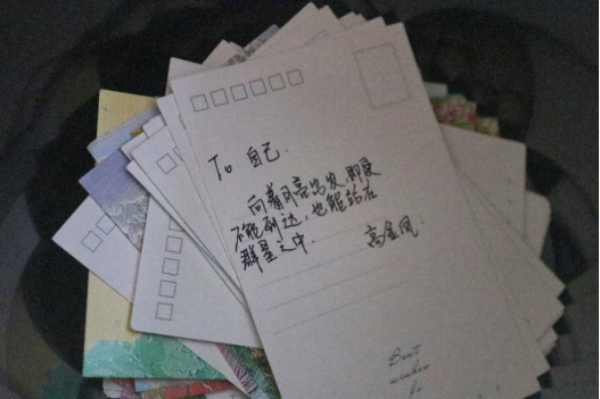 To 自己.
向着月亮出发,即使
不能到达,也能站在
群星之中.
高金凤.
Best
wishes